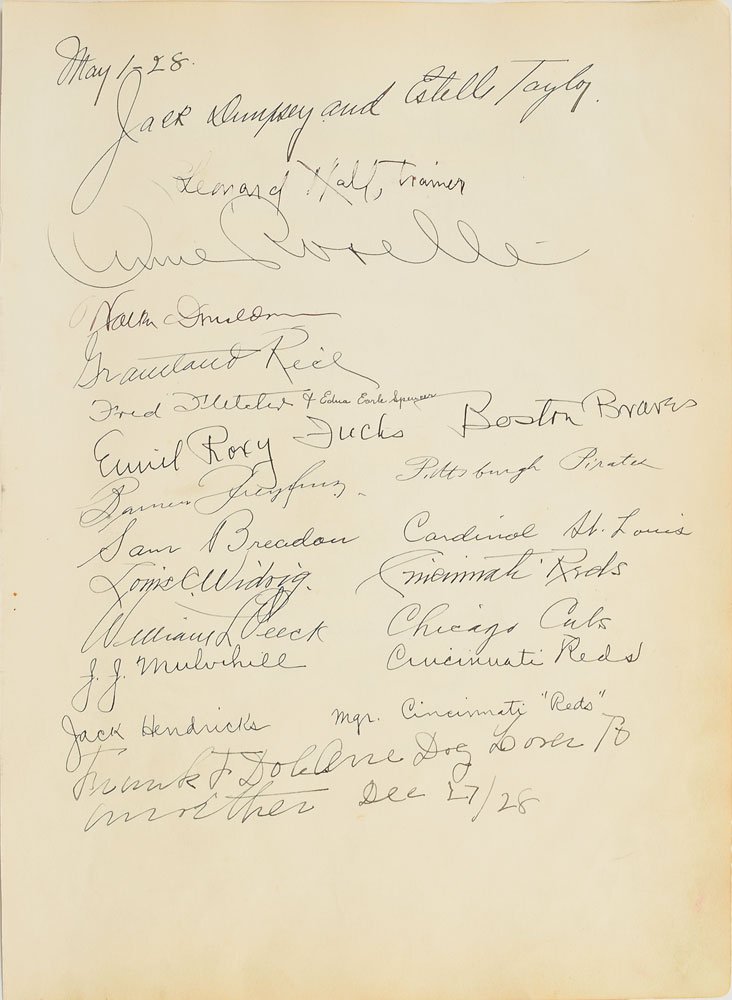 May 1-28.
Jack Dempsey and Estelle Taylor.
Leonard Hall, trainer
Anne Roselle
Grantland Rice
Fred Fletcher & Edna Earle Spencer
Emil Roxy Fuchs Boston Braves
Barney Dreyfuss. Pittsburgh Pirates
Sam Breadon Cardinal St. Louis
Louis C. Widrig. Cincinnati Reds
William L Veeck Chicago Cubs
J. J. Mulvihill Cincinnati Reds
Jack Hendricks Mgr. Cincinnati "Reds"
Frank F Dole One Dog Lover To
another Dec 27/28